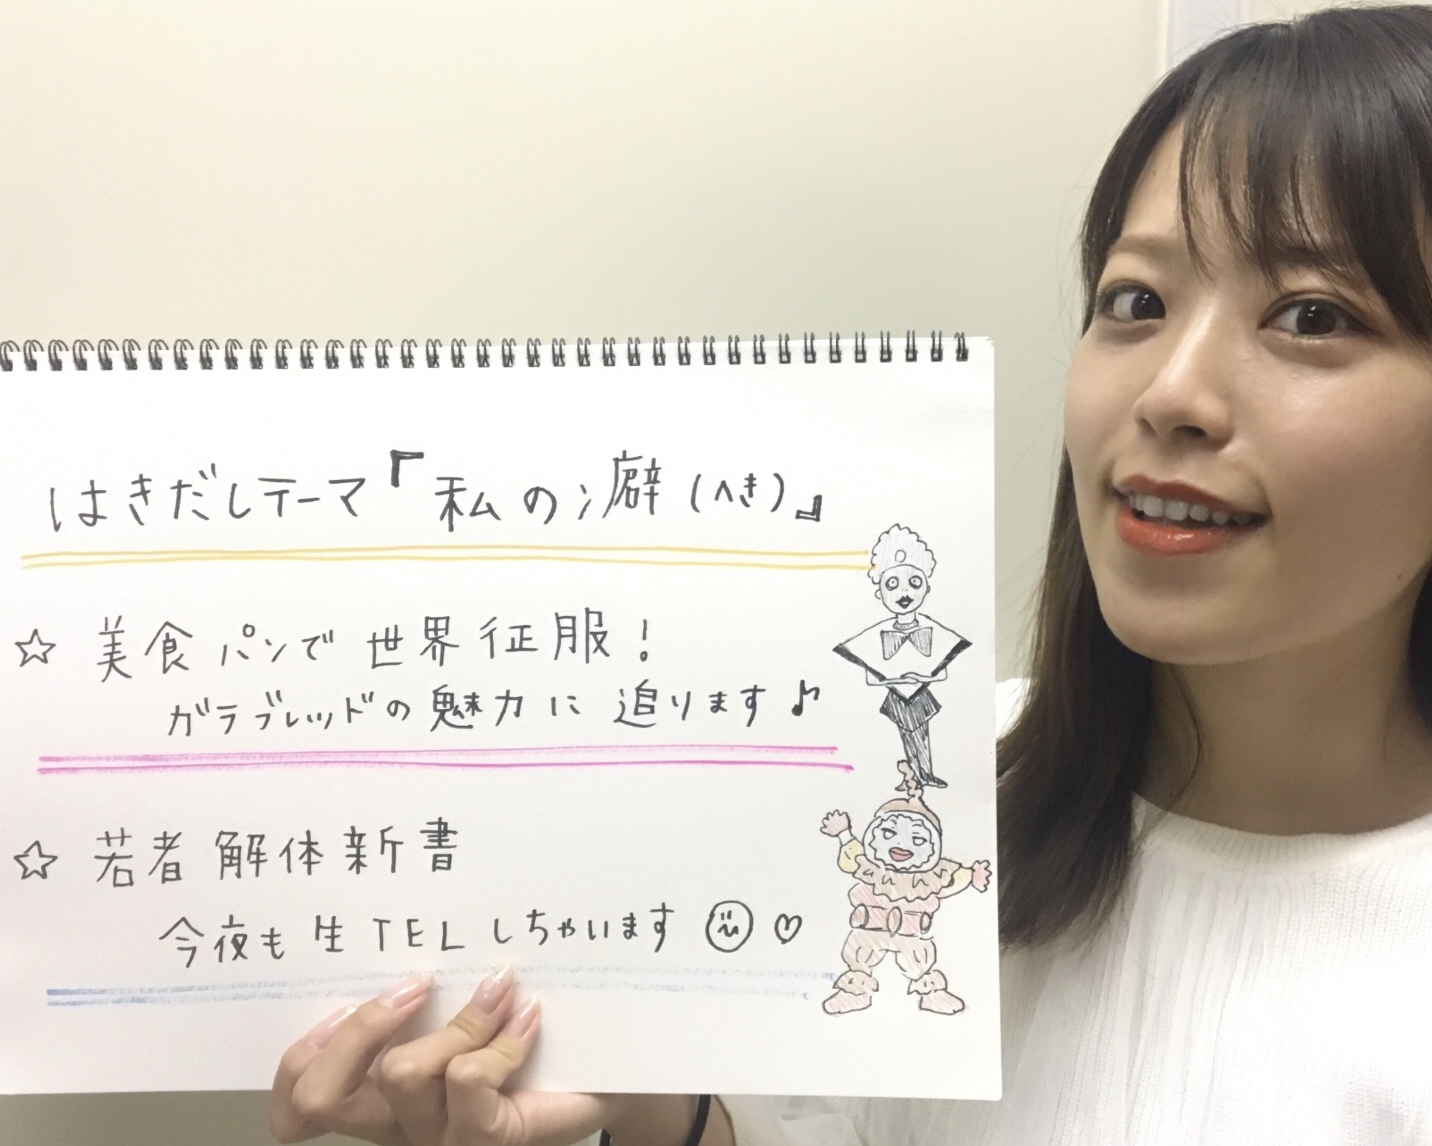 はきだしテーマ『私の癖(へき)』
☆ 美食パンで世界征服!
ガラブレッドの魅力に迫ります♪
☆ 若者解体新書
今夜も生TELしちゃいます ♡